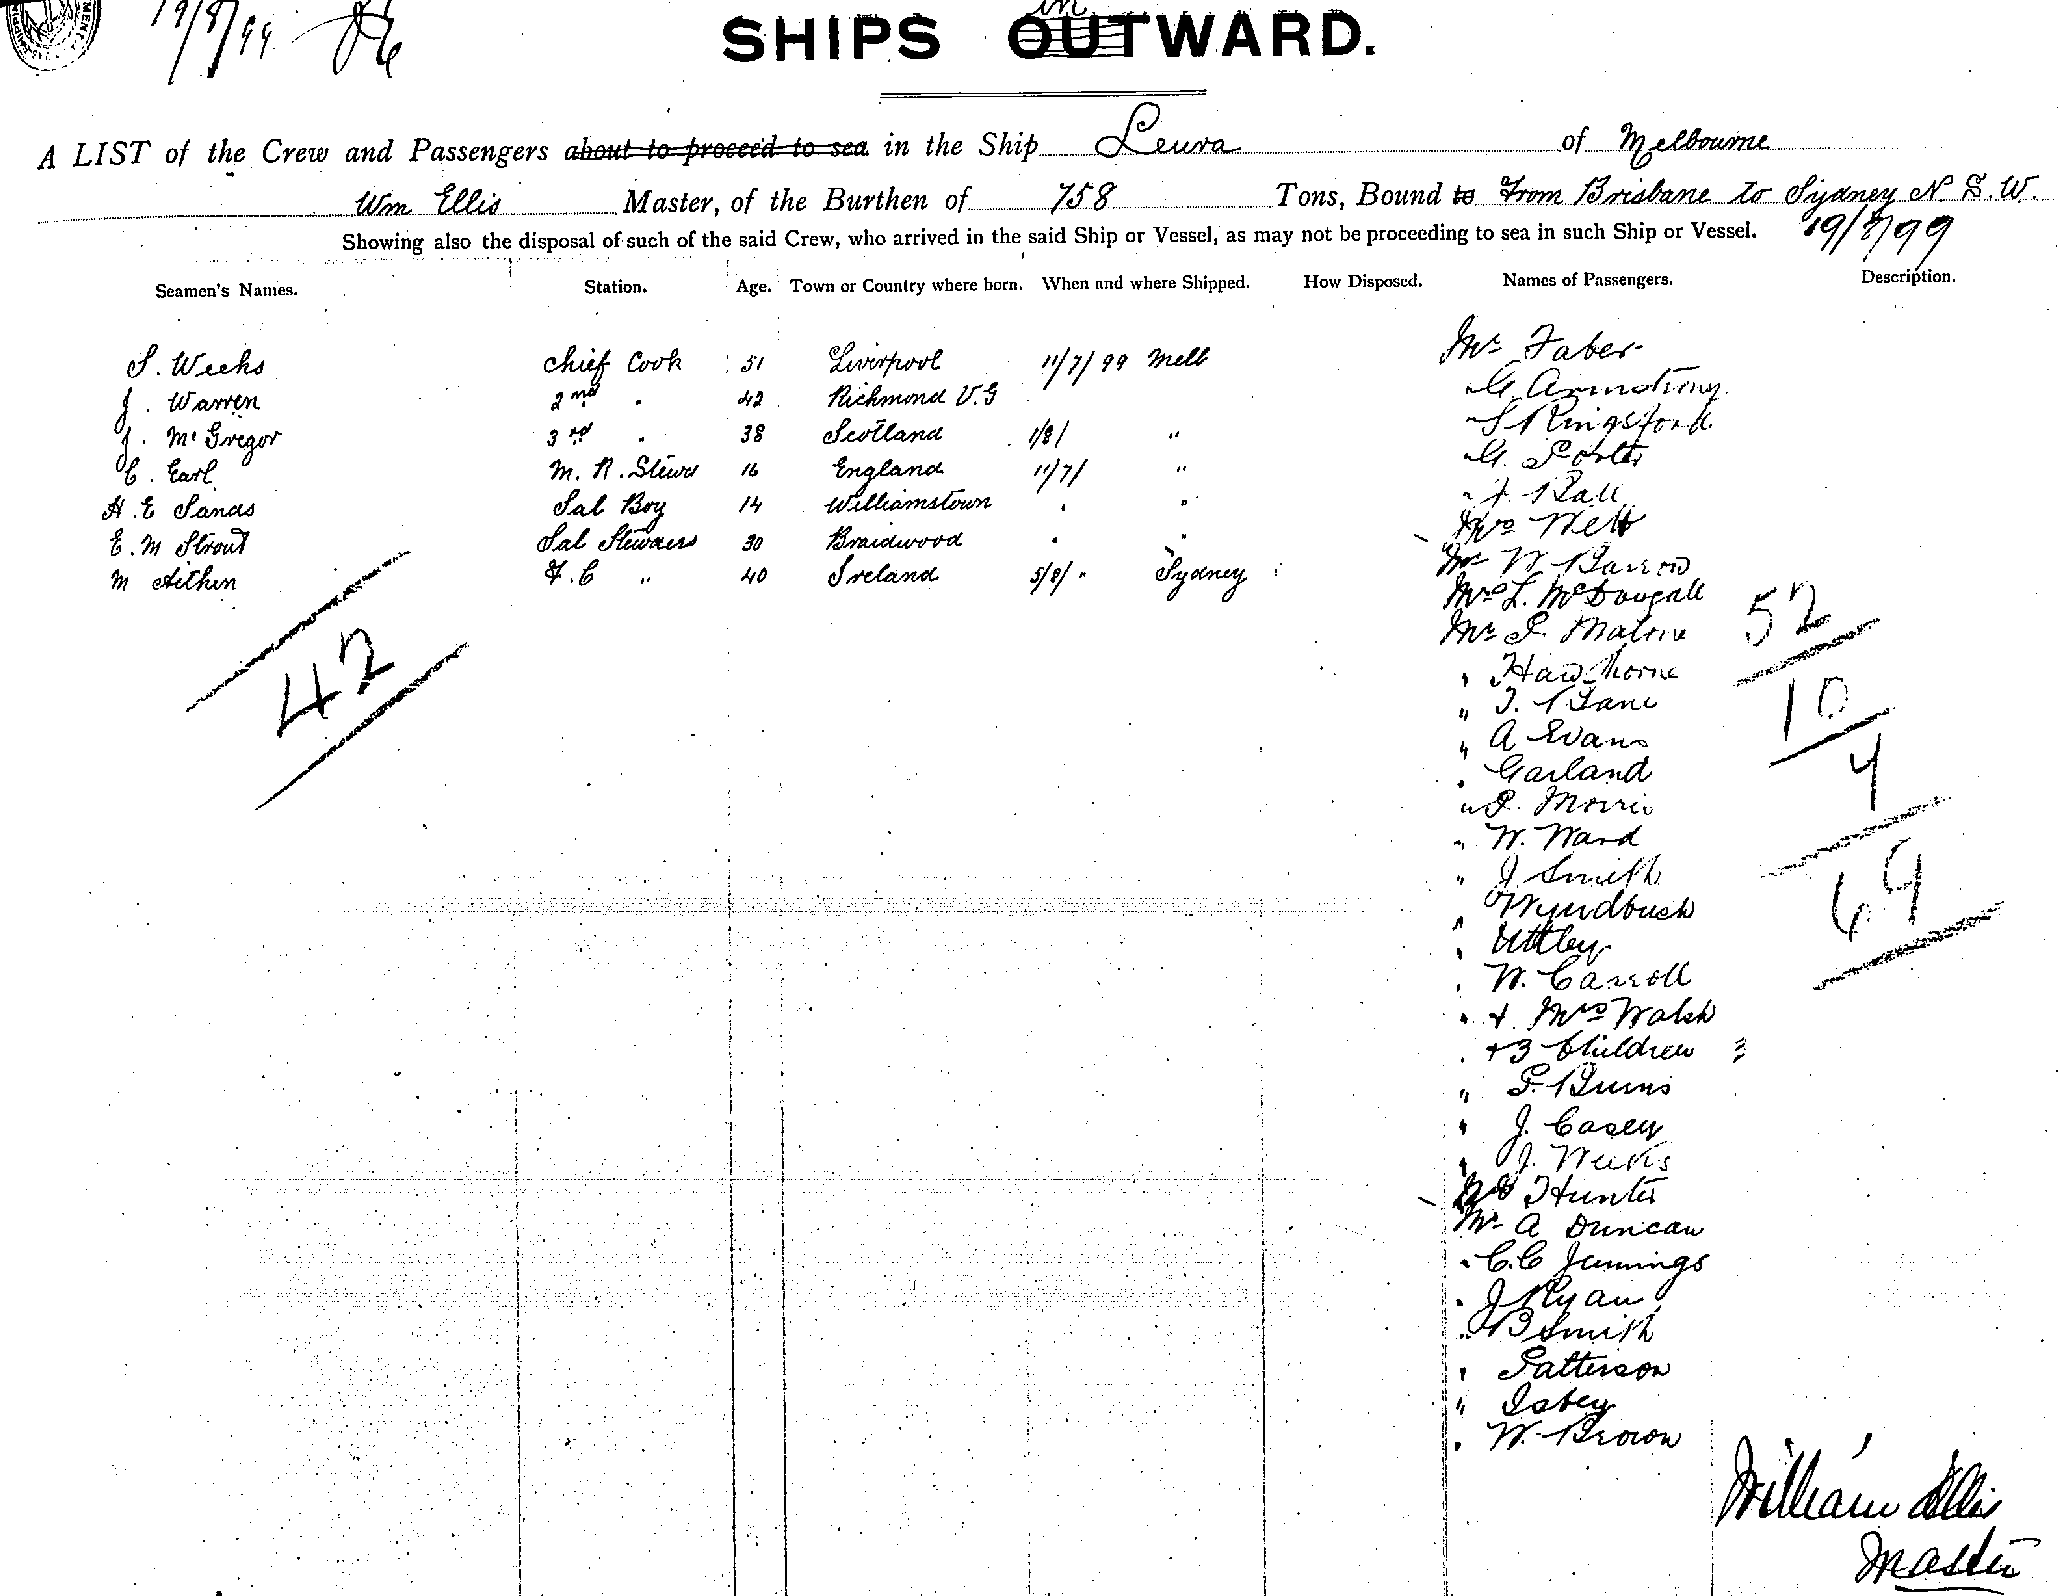 19/8/99
in
SHIPS OUTWARD.
A LIST of the Crew and Passengers about to proceed to sea in the Ship Leura of Melbourne
Wm Ellis Master, of the Burthen of 758 Tons, Bound to From Brisbane to Sydney N.S.W.
Showing also the disposal of such of the said Crew, who arrived in the said Ship or Vessel, as may not be proceeding to sea in such Ship or Vessel. 19/8/99
Seamen's Names. Station. Age. Town or Country where born. When and where Shipped. How Disposed. Names of Passengers. Description.
Mr Faber
S. Weeks Chief Cook 51 Liverpool 11/7/99 Melb
G. Armstrong
J. Warren 2nd " 42 Richmond V.G
S Kingsford
J. McGregor 3rd " 38 Scotland 1/8/ "
G. Porter
C. Earl M. R. Stewd 16 England 11/7/ "
J. Ball
H. E Sands Sal Boy 14 Williamstown " "
Mrs Webb
E. M Strout Sal Stewdess 30 Braidwood " "
Mr W Barrow
M Aitken F.C " 40 Ireland 5/8/ " Sydney
Mrs L. McDougall
42
Mr P. Malone 52
" Hawthorne
" T. Lane 10
" A Evans
" Garland 4
" P. Morris
" W. Ward
" J Smith 69
" Wyndbush
" Uttley
" W. Carroll
" + Mrs Walsh
" + 3 Children 3
" F. Burns
" J. Casey
" J. Weeks
Mrs Hunter
Mr A Duncan
" C.C Jennings
" J Ryan
" B Smith
" Patterson
" Isbey
" W. Brown
William Ellis
Master